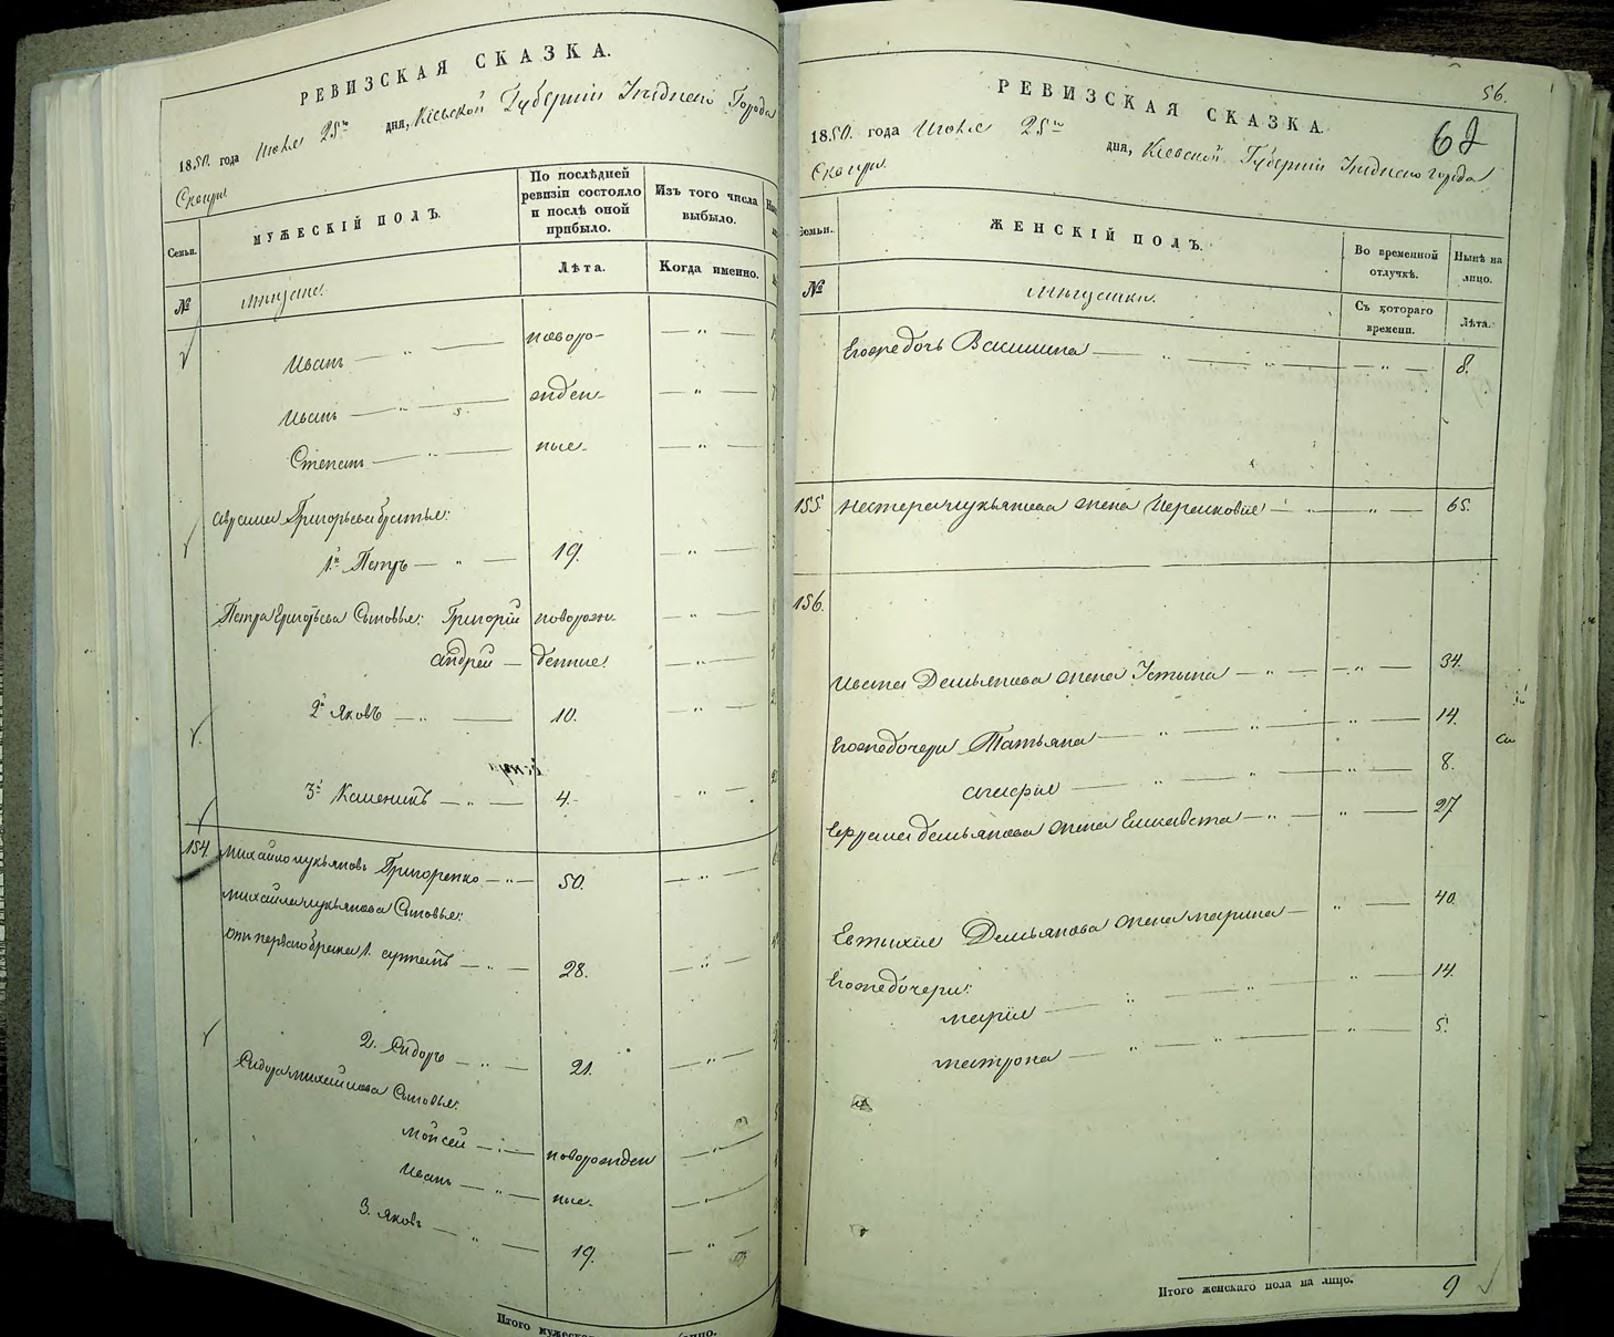 РЕВИЗСКАЯ СКАЗКА.
1850. года Июля 25го дня, Кіевской Губерніи Уѣзднаго Города
Сквиры
Семьи. МУЖЕСКІЙ ПОЛЪ. По послѣдней ревизіи состояло и послѣ оной прибыло. Изъ того числа выбыло.
Лѣта. Когда именно.
№ Мещане.
Иванъ — " — новоро- — " —
Иванъ — " — жден- — " —
Степанъ — " — ные. — " —
Григорьева братья:
1й Петръ — " — 19. — " —
Петра Григорьева Сыновья: Григорій новорож- — " —
Андрей — денные. — " —
2й Яковъ — " — 10. — " —
3й — " — 4. — " —
154. Михайло Лукьяновъ Григоренко — " — 50. — " —
Михайла Лукьянова Сыновья:
отъ перваго брака 1. — " — 28. — " —
2. Сидоръ — " — 21. — " —
Сидора Михайлова Сыновья:
Мойсей — " — новорожден — " —
Иванъ — " — ные. — " —
3. Яковъ — " — 19. — " —
Итого
56.
РЕВИЗСКАЯ СКАЗКА.
62
1850. года Июля 25го дня, Кіевской Губерніи Уѣзднаго города
Сквиры.
Семьи. ЖЕНСКІЙ ПОЛЪ. Во временной отлучкѣ. Нынѣ на лицо.
№ Мещанки. Съ котораго времени. Лѣта.
Егоже дочь Василина — " — " — 8.
155. Нестера Лукьянова жена — " — " — 65.
156.
Ивана Демьянова жена Устина — " — " — 34.
Егоже дочери Татьяна — " — " — 14.
Агафія — " — " — 8.
Демьянова жена Елисавета — " — " — 27
Евтихія Демьянова жена Марина — " — 40
Егоже дочери:
Марія — " — " — 14.
Матрона — " — " — 5.
Итого женскаго пола на лицо. 9